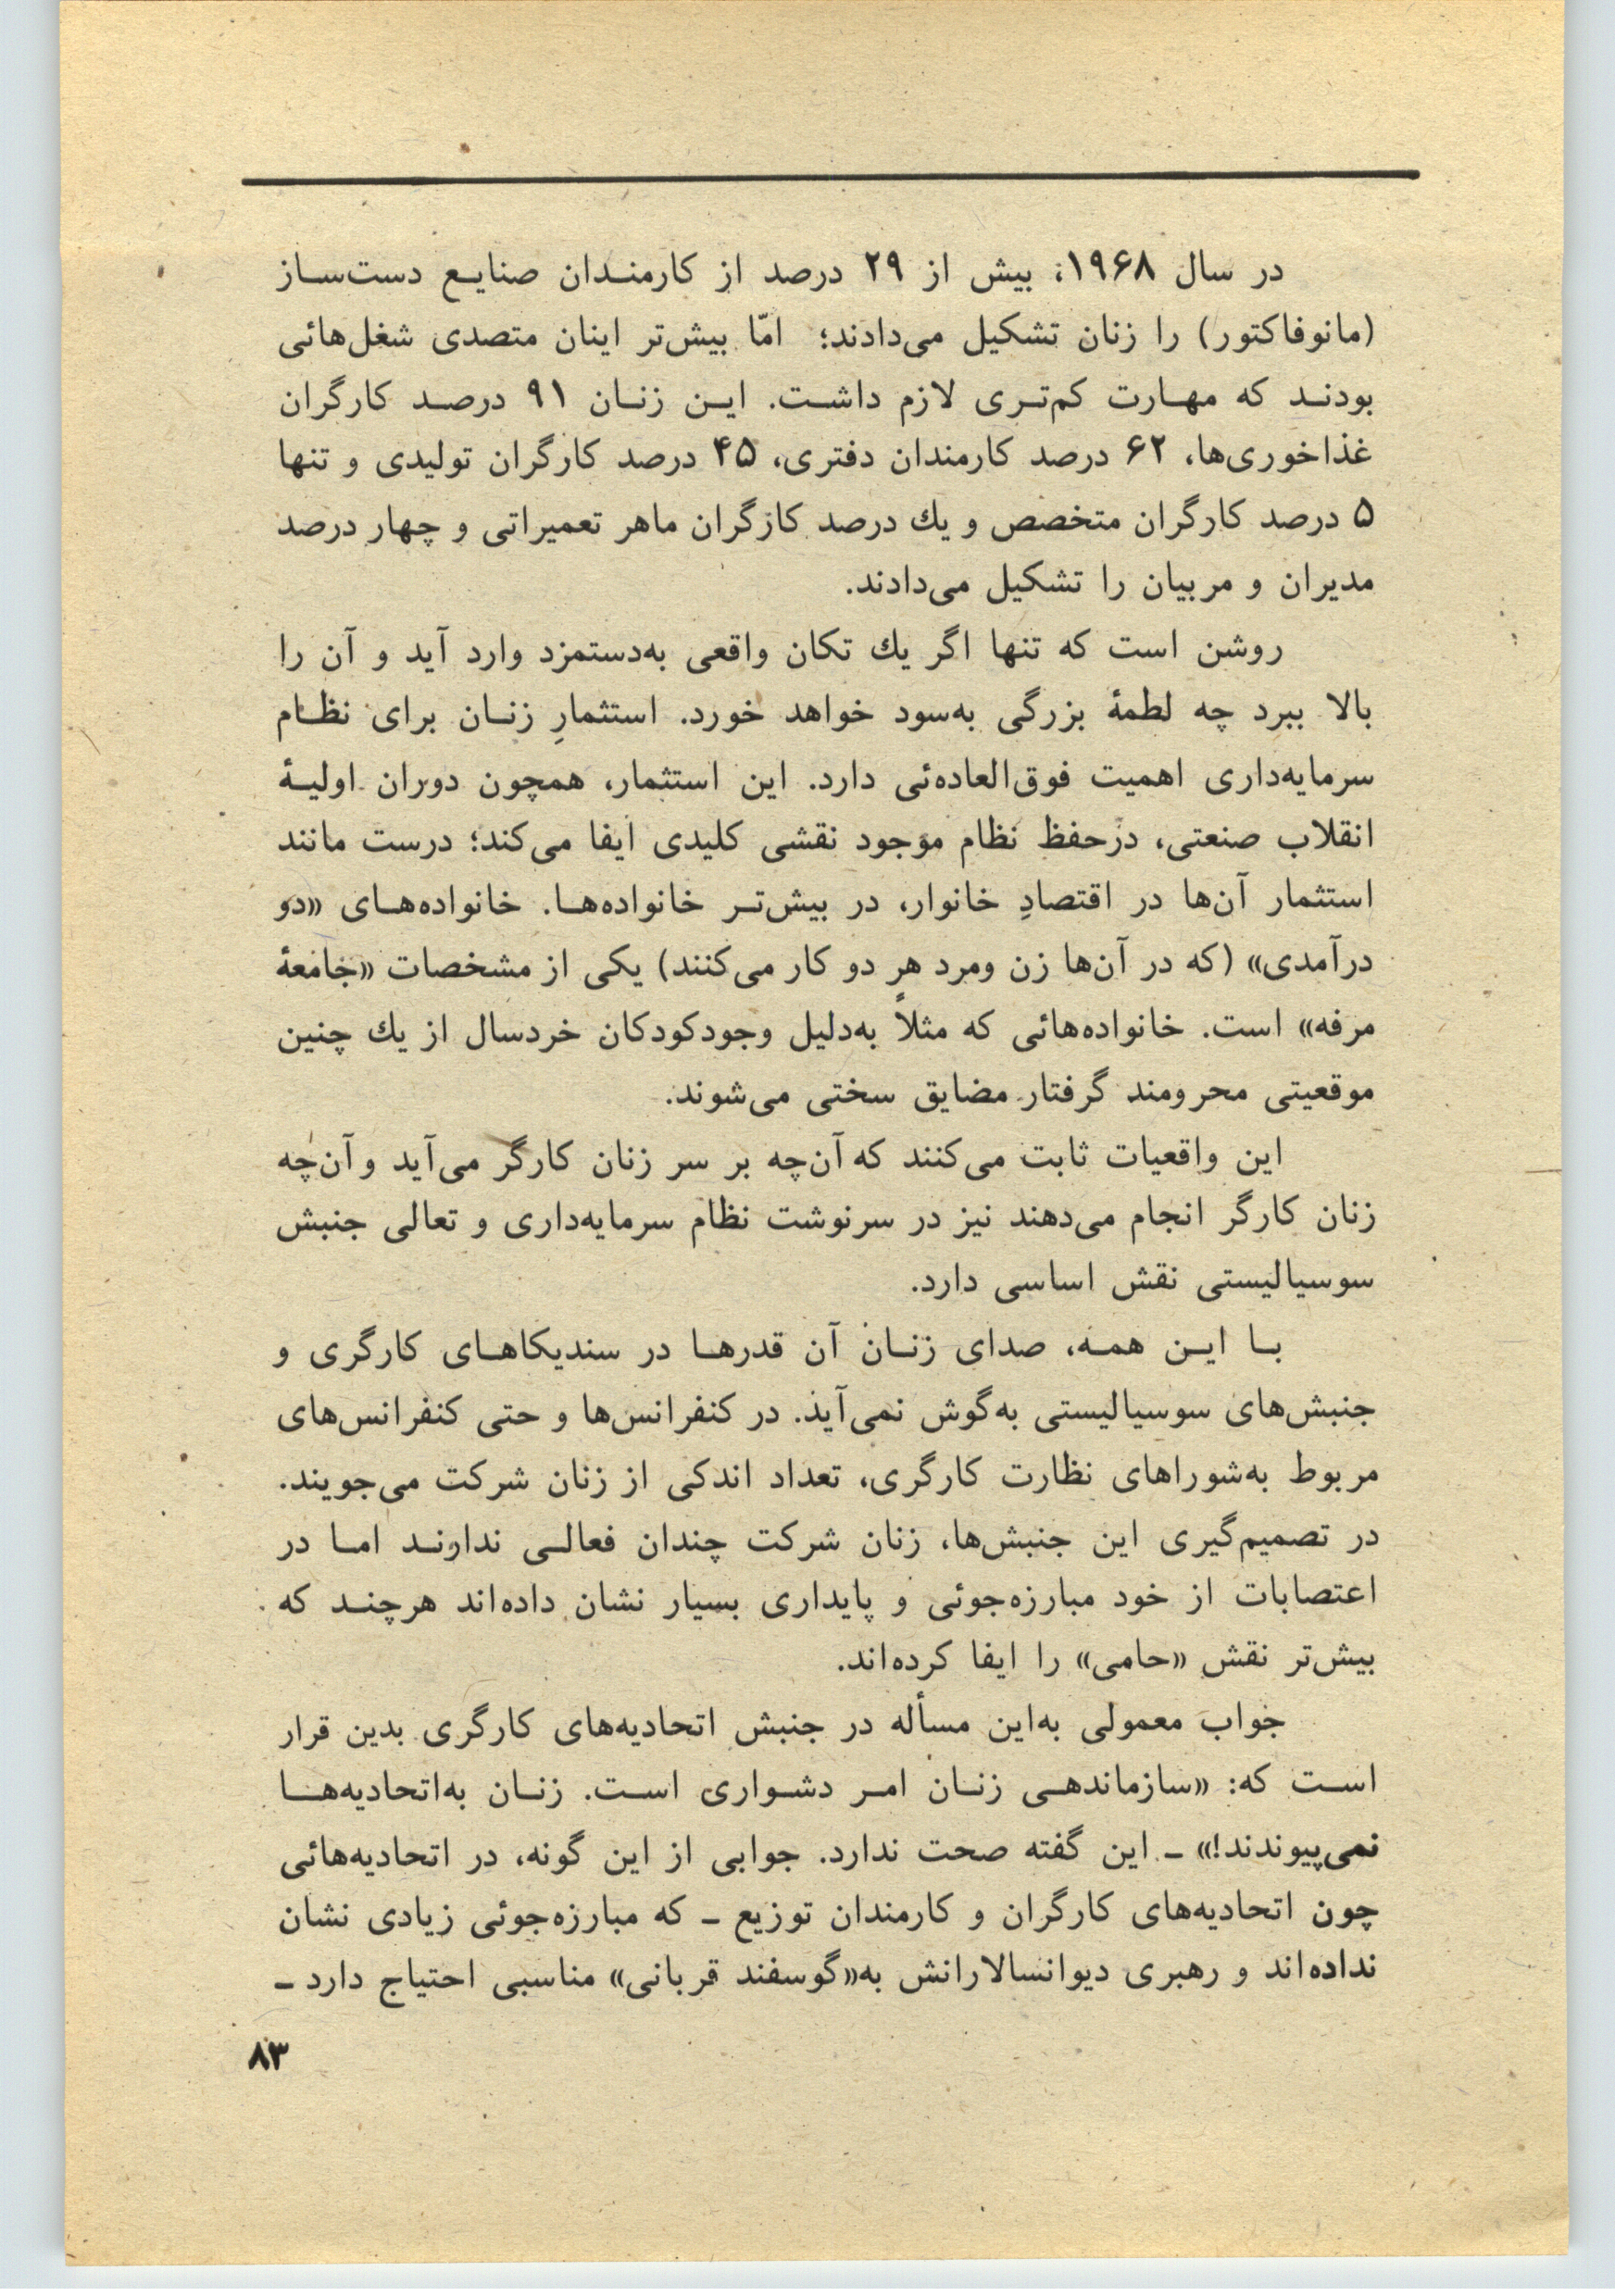 در سال ۱۹۶۸، بیش از ۲۹ درصد از کارمندان صنایع دست‌ساز
(مانوفاکتور) را زنان تشکیل می‌دادند؛ امّا بیش‌تر اینان متصدی شغل‌هائی
بودند که مهارت کم‌تری لازم داشت. این زنان ۹۱ درصد کارگران
غذاخوری‌ها، ۶۲ درصد کارمندان دفتری، ۴۵ درصد کارگران تولیدی و تنها
۵ درصد کارگران متخصص و یك درصد کارگران ماهر تعمیراتی و چهار درصد
مدیران و مربیان را تشکیل می‌دادند.
روشن است که تنها اگر یك تکان واقعی به‌دستمزد وارد آید و آن را
بالا ببرد چه لطمهٔ بزرگی به‌سود خواهد خورد. استثمارِ زنان برای نظام
سرمایه‌داری اهمیت فوق‌العاده‌ئی دارد. این استثمار، همچون دوران اولیهٔ
انقلاب صنعتی، درحفظ نظام موجود نقشی کلیدی ایفا می‌کند؛ درست مانند
استثمار آن‌ها در اقتصادِ خانوار، در بیش‌تر خانواده‌ها. خانواده‌های «دو
درآمدی» (که در آن‌ها زن ومرد هر دو کار می‌کنند) یکی از مشخصات «جامعهٔ
مرفه» است. خانواده‌هائی که مثلاً به‌دلیل وجودکودکان خردسال از یك چنین
موقعیتی محرومند گرفتار مضایق سختی می‌شوند.
این واقعیات ثابت می‌کنند که آن‌چه بر سر زنان کارگر می‌آید و آن‌چه
زنان کارگر انجام می‌دهند نیز در سرنوشت نظام سرمایه‌داری و تعالی جنبش
سوسیالیستی نقش اساسی دارد.
با این همه، صدای زنان آن قدرها در سندیکاهای کارگری و
جنبش‌های سوسیالیستی به‌گوش نمی‌آید. در کنفرانس‌ها و حتی کنفرانس‌های
مربوط به‌شوراهای نظارت کارگری، تعداد اندکی از زنان شرکت می‌جویند.
در تصمیم‌گیری این جنبش‌ها، زنان شرکت چندان فعالی ندارند اما در
اعتصابات از خود مبارزه‌جوئی و پایداری بسیار نشان داده‌اند هرچند که
بیش‌تر نقش «حامی» را ایفا کرده‌اند.
جواب معمولی به‌این مسأله در جنبش اتحادیه‌های کارگری بدین قرار
است که: «سازماندهی زنان امر دشواری است. زنان به‌اتحادیه‌ها
نمی‌پیوندند!» ــ این گفته صحت ندارد. جوابی از این گونه، در اتحادیه‌هائی
چون اتحادیه‌های کارگران و کارمندان توزیع ــ که مبارزه‌جوئی زیادی نشان
نداده‌اند و رهبری دیوانسالارانش به«گوسفند قربانی» مناسبی احتیاج دارد ــ
۸۳